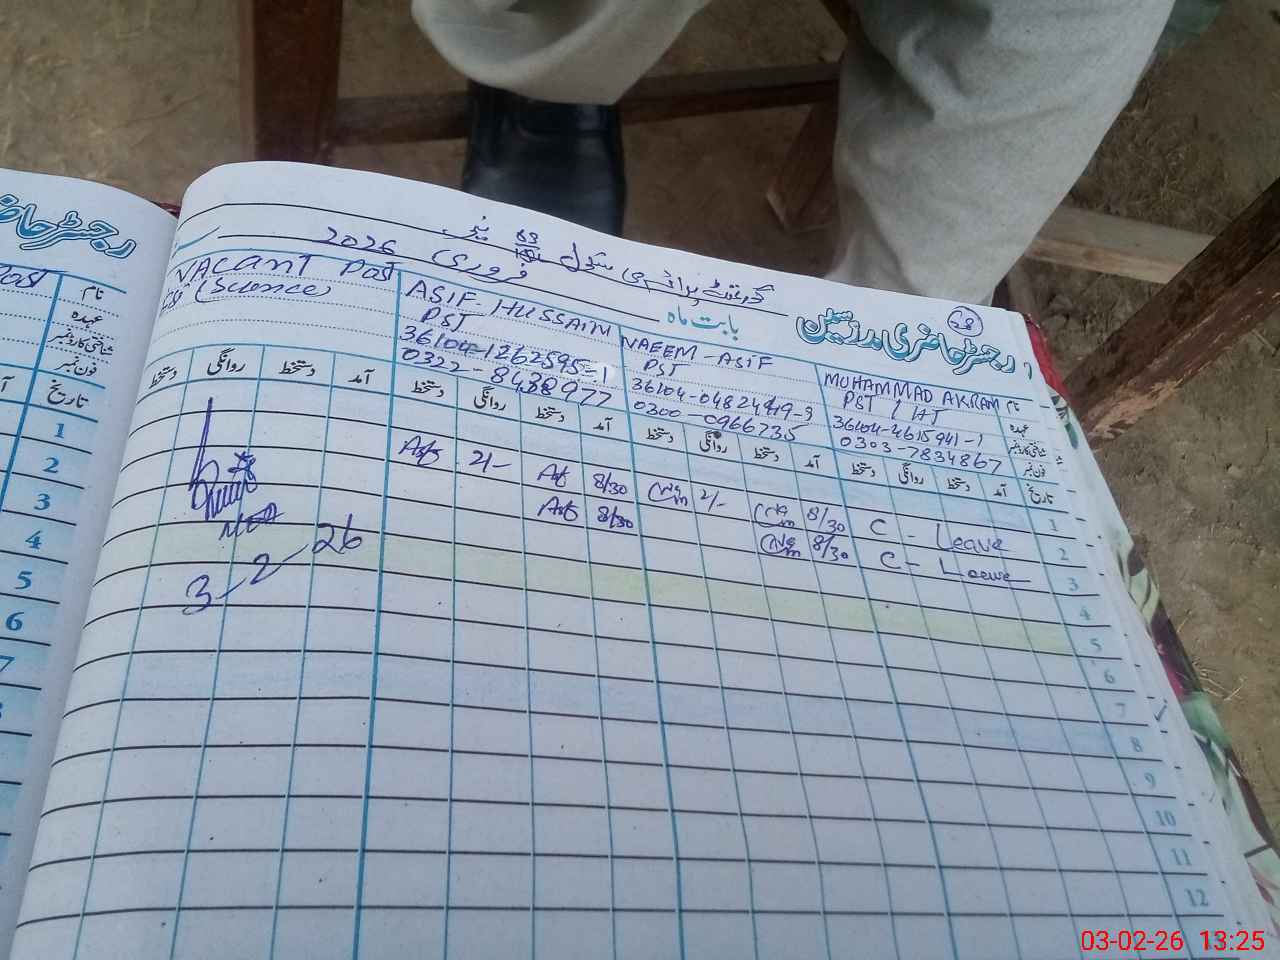 رجسٹر حاضری مدرسین
68
گورنمنٹ پرائمری سکول
بابت ماہ فروری 2026
نام MUHAMMAD AKRAM
عہدہ PST / HT
شناختی کارڈ نمبر 36104-4615941-1
فون نمبر 0303-7834867
NAEEM-ASIF
PST
36104-0482449-9
0300-0966735
ASIF-HUSSAIN
PST
36104-1262595-1
0322-8438977
VACANT Post
(Science)
تاریخ آمد دستخط روانگی دستخط آمد دستخط روانگی دستخط آمد دستخط روانگی دستخط آمد دستخط روانگی دستخط
1
2 C - Leave 8/30 2/- 8/30 Asf 2/- Asf
3 C - Leave 8/30 8/30 Asf
4
5
6
7
8
9
10
11
12
3-2-26
رجسٹر حاضری
Post
نام
عہدہ
شناختی کارڈ نمبر
فون نمبر
تاریخ
1
2
3
4
5
6
7
03-02-26 13:25